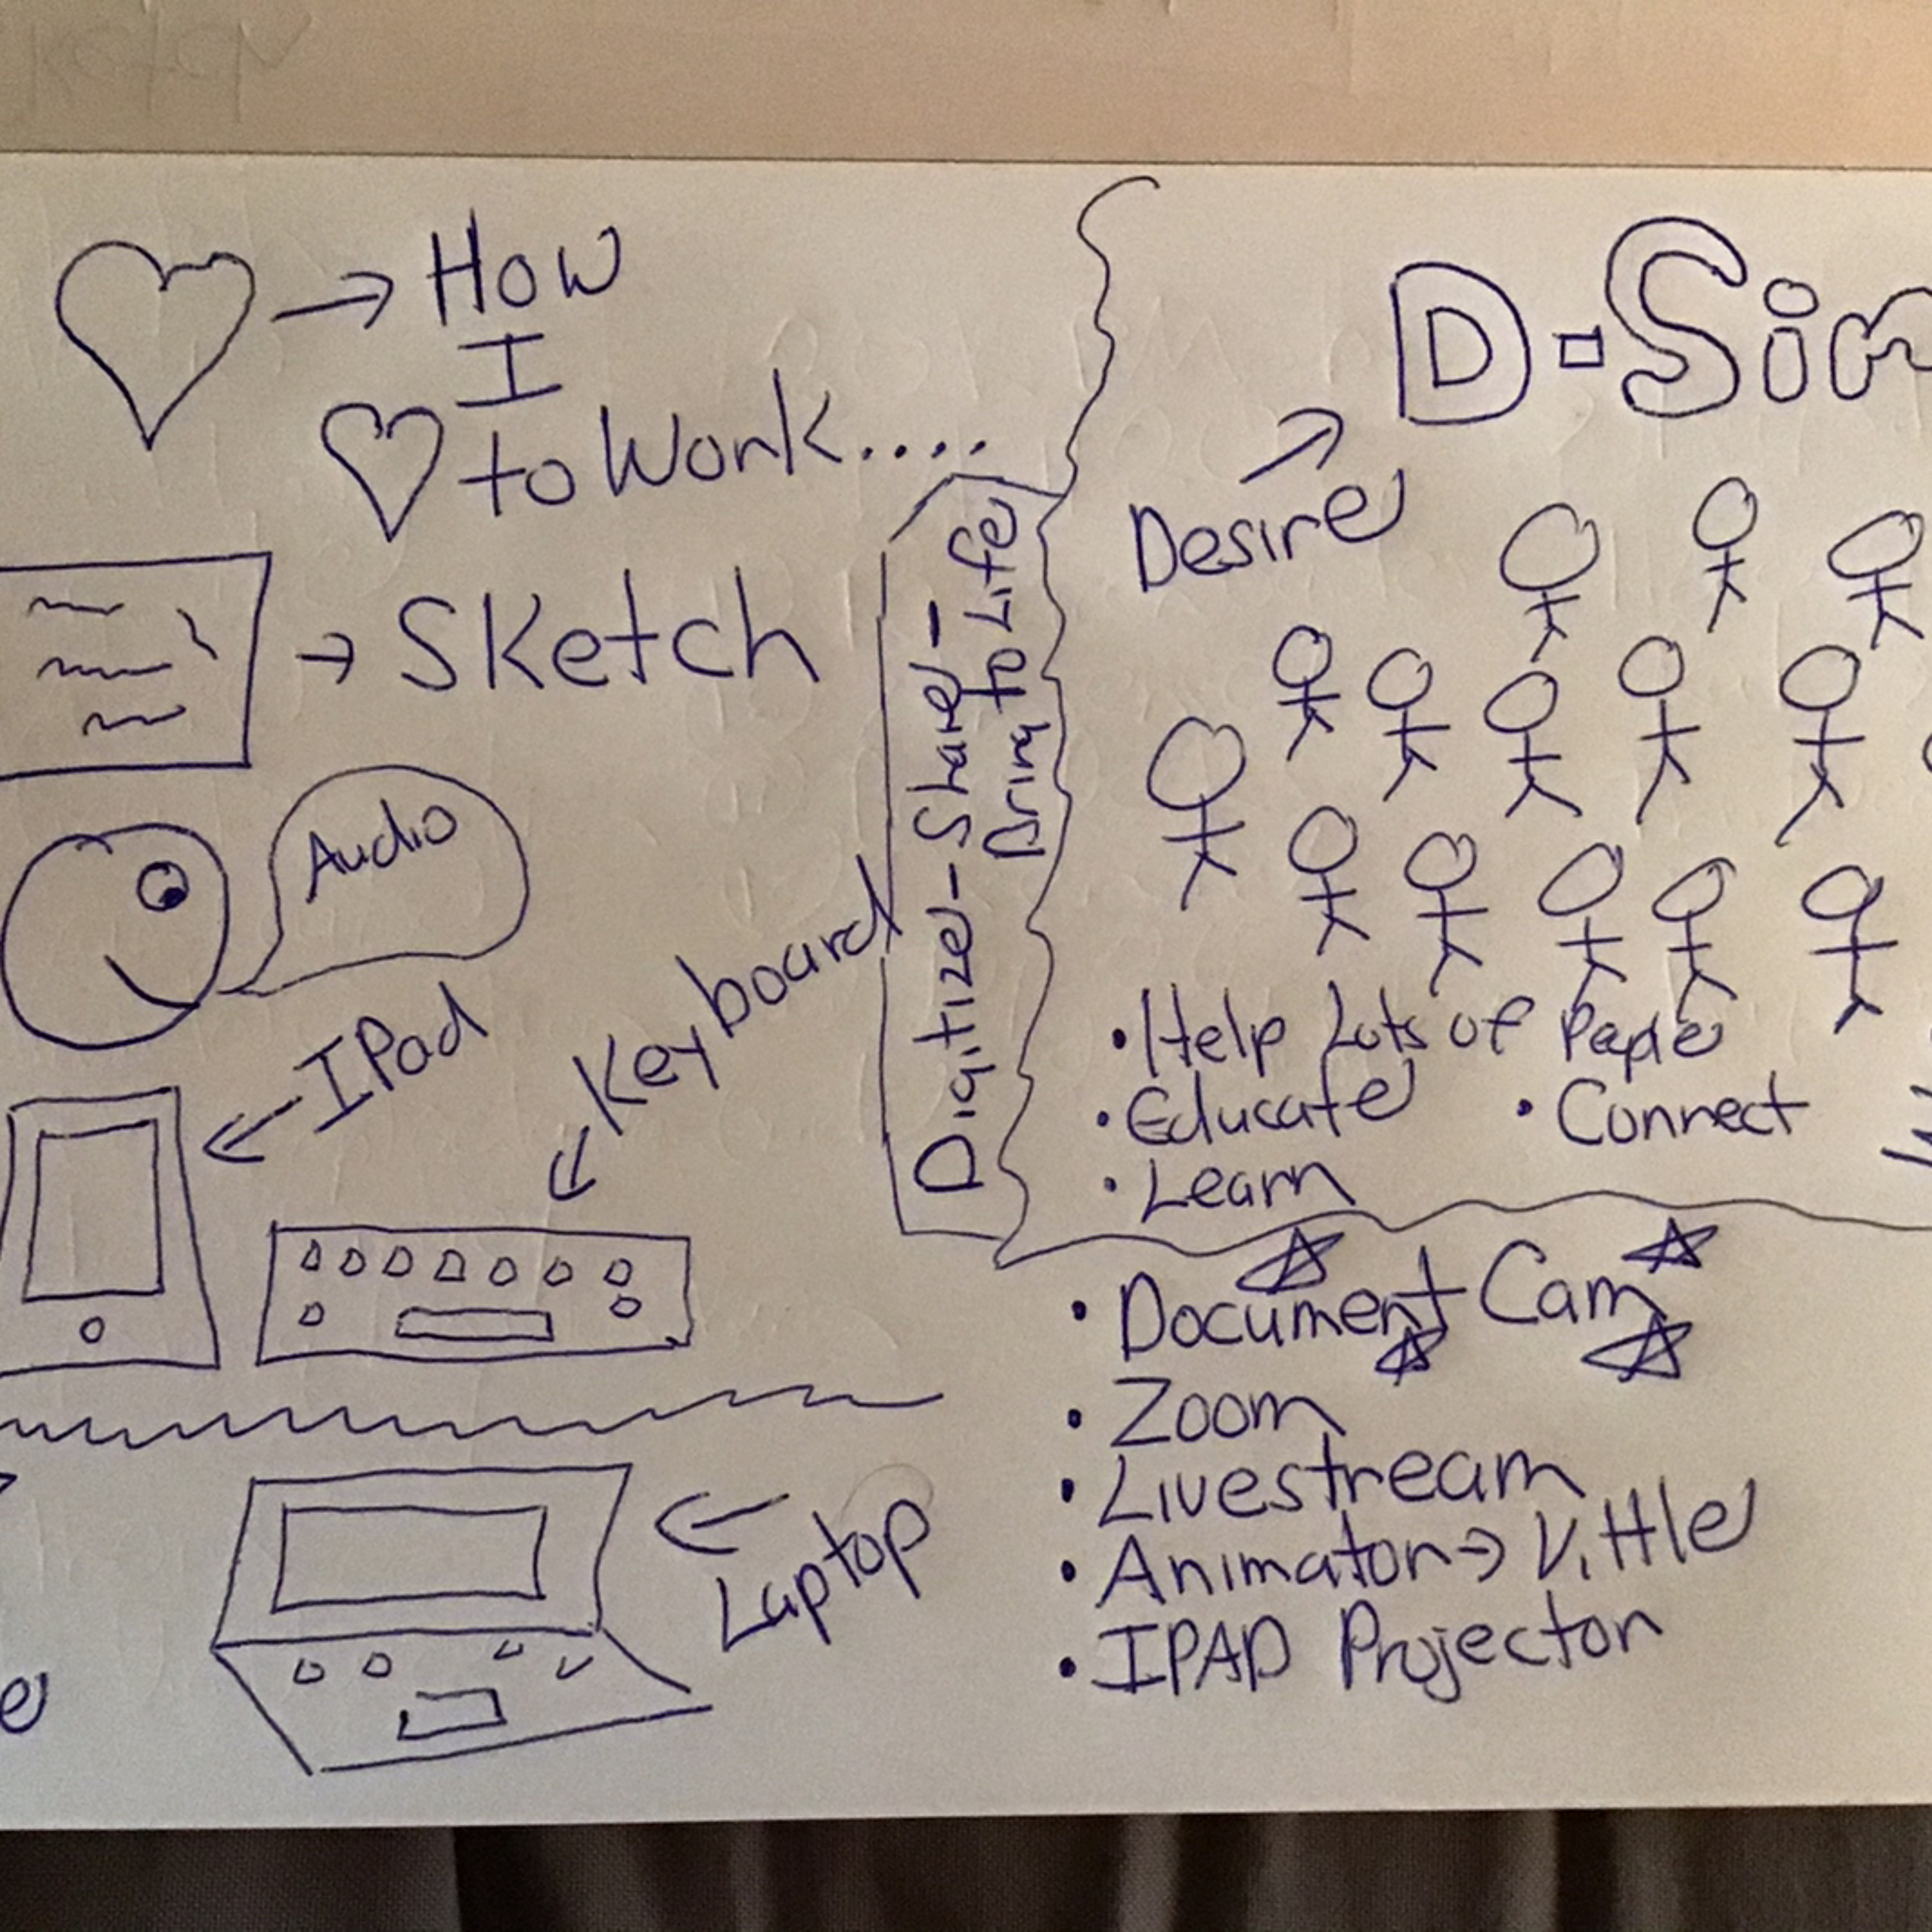 How
I
to Work....
Sketch
Audio
IPad
Keyboard
Digitize - Share -
Bring to Life
D-Sir
Desire
• Help Lots of People
• Educate • Connect
• Learn
• Document Cam
• Zoom
• Livestream
• Animator → Vittle
• IPAD Projector
Laptop
e